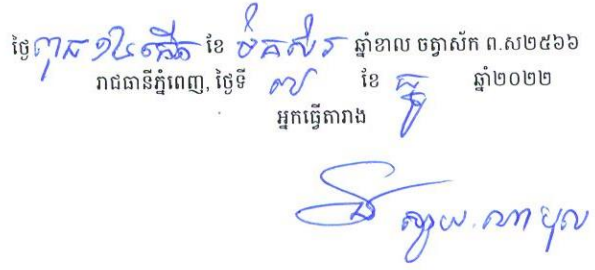 ថ្ងៃ ពុធ ១៤កើត ខែ មិគសិរ ឆ្នាំខាល ចត្វាស័ក ព.ស២៥៦៦
រាជធានីភ្នំពេញ, ថ្ងៃទី ៧ ខែ ធ្នូ ឆ្នាំ២០២២
អ្នកធ្វើតារាង
ស្វាយ. ណាបុល